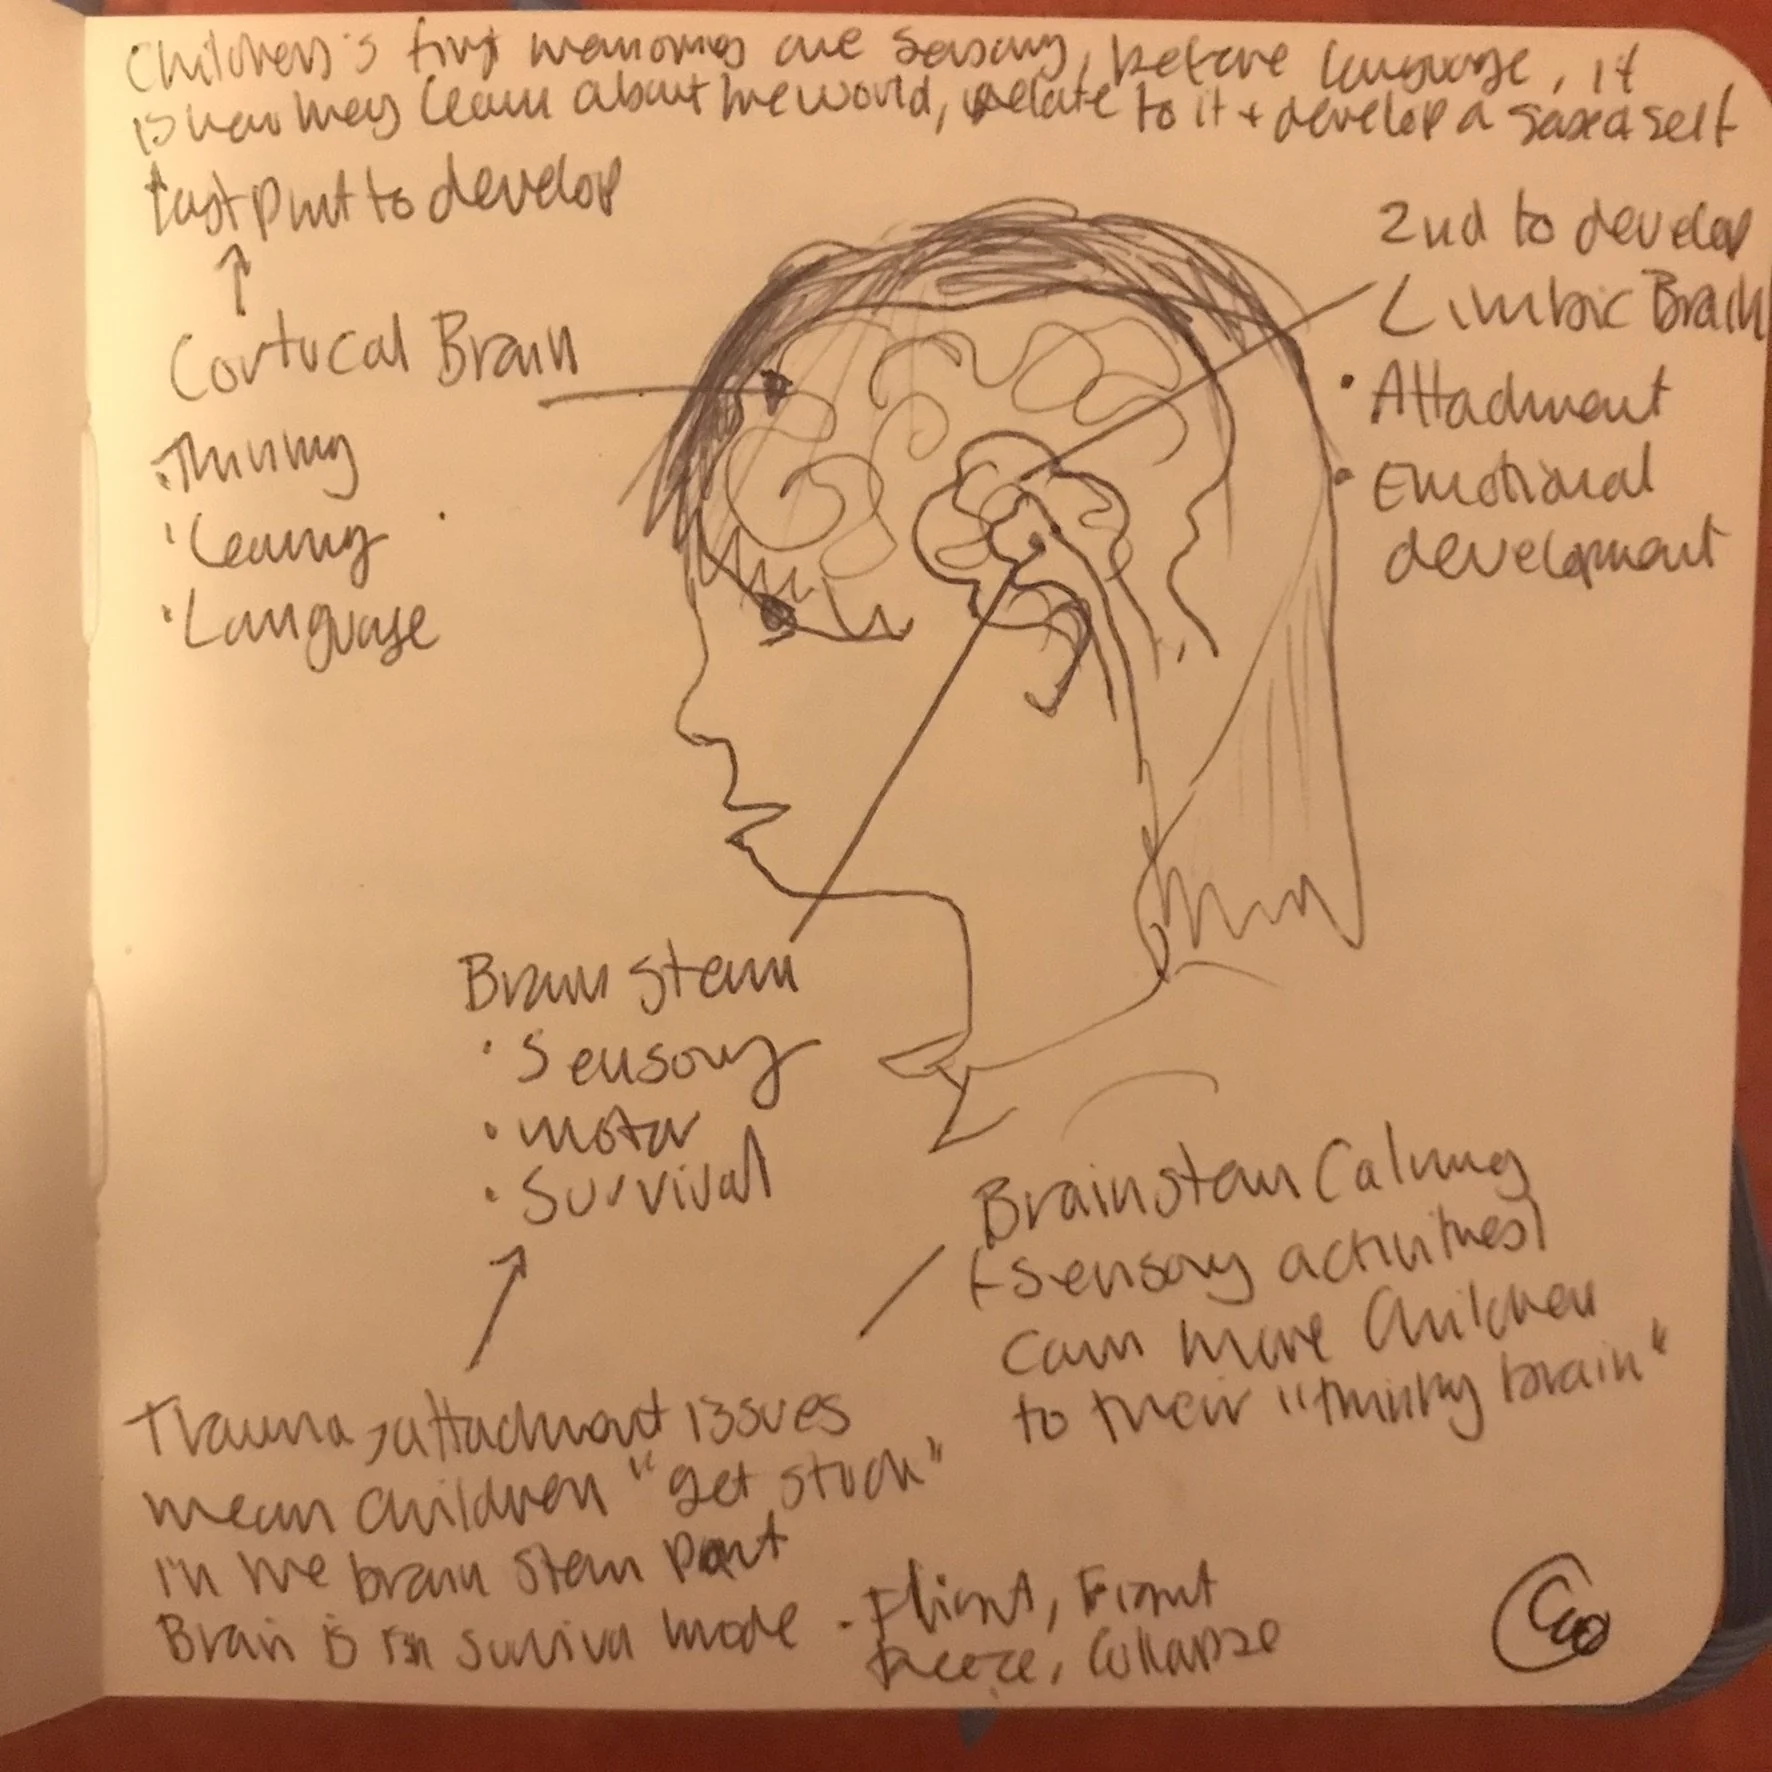 Children's first memories are sensory, before language, it
is how they learn about the world, relate to it + develop a sense of self
Last part to develop
Cortucal Brain
• Thinking
• Learning
• Language
2nd to develop
Limbic Brain
• Attachment
• Emotional
development
Brain stem
• Sensory
• motor
• Survival
Brainstem Calming
(sensory activities)
can move Children
to their "thinking brain"
Trauma, attachment issues
mean children "get stuck"
in the brain stem part
Brain is in survival mode - Flight, Fight
freeze, Collapse